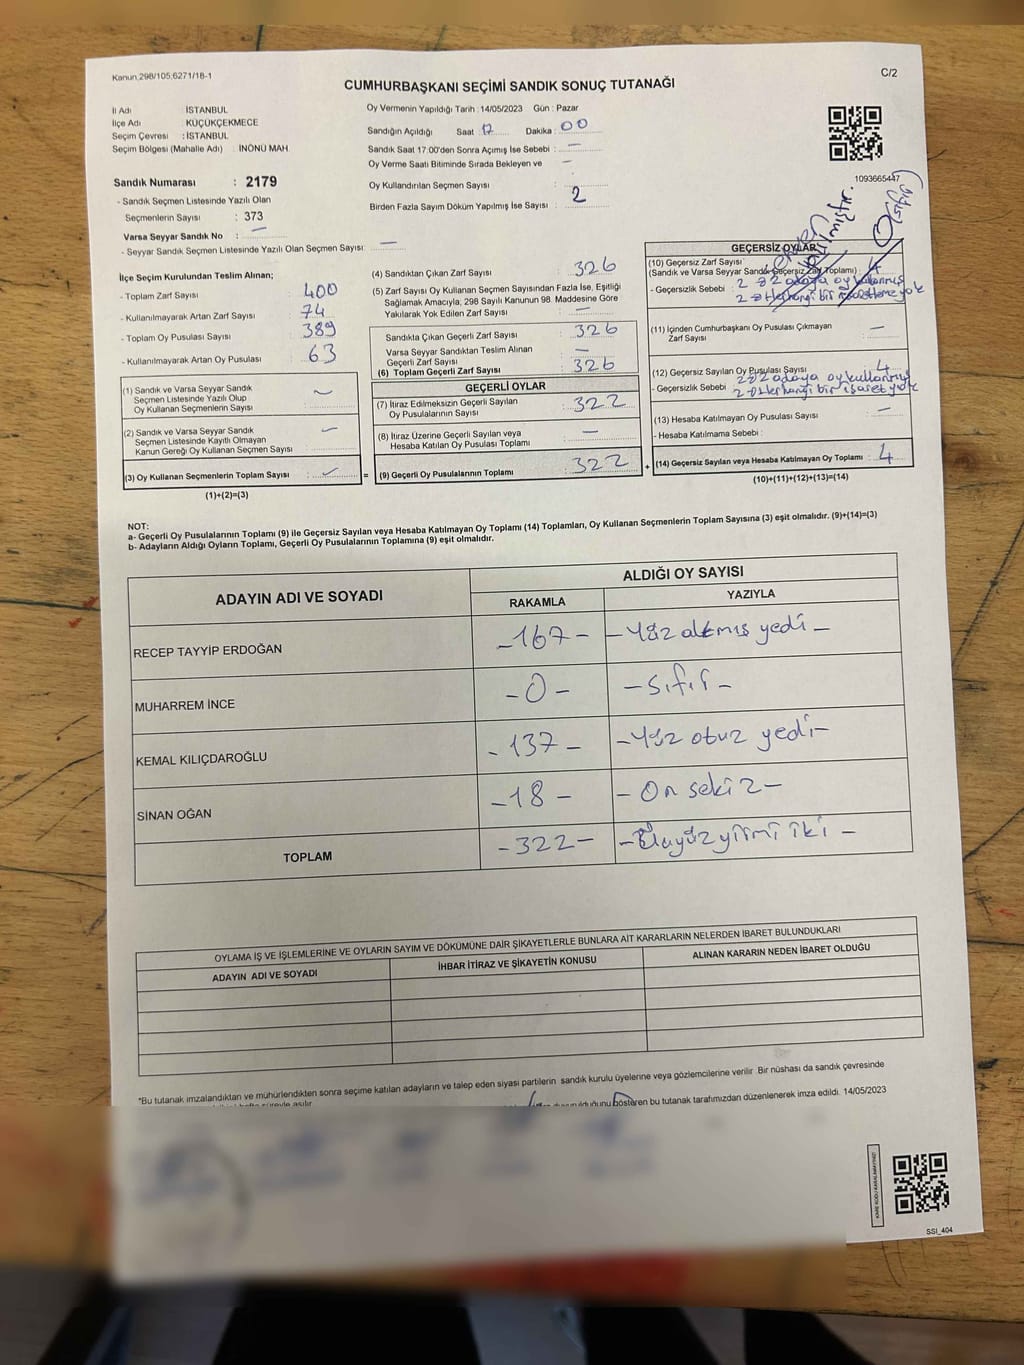 Kanun.298/105;6271/18-1
C/2
CUMHURBAŞKANI SEÇİMİ SANDIK SONUÇ TUTANAĞI
İl Adı İSTANBUL
İlçe Adı KÜÇÜKÇEKMECE
Seçim Çevresi : İSTANBUL
Seçim Bölgesi (Mahalle Adı) : İNÖNÜ MAH.
Sandık Numarası : 2179
- Sandık Seçmen Listesinde Yazılı Olan
Seçmenlerin Sayısı : 373
Varsa Seyyar Sandık No : —
- Seyyar Sandık Seçmen Listesinde Yazılı Olan Seçmen Sayısı: —
Oy Vermenin Yapıldığı Tarih : 14/05/2023 Gün : Pazar
Sandığın Açıldığı Saat : 17 Dakika : 00
Sandık Saat 17.00'den Sonra Açılmış İse Sebebi : —
Oy Verme Saati Bitiminde Sırada Bekleyen ve —
Oy Kullandırılan Seçmen Sayısı :
Birden Fazla Sayım Döküm Yapılmış İse Sayısı : 2
1093665447
İlçe Seçim Kurulundan Teslim Alınan;
- Toplam Zarf Sayısı : 400
- Kullanılmayarak Artan Zarf Sayısı : 74
- Toplam Oy Pusulası Sayısı : 389
- Kullanılmayarak Artan Oy Pusulası : 63
(1) Sandık ve Varsa Seyyar Sandık
Seçmen Listesinde Yazılı Olup
Oy Kullanan Seçmenlerin Sayısı : —
(2) Sandık ve Varsa Seyyar Sandık
Seçmen Listesinde Kayıtlı Olmayan
Kanun Gereği Oy Kullanan Seçmen Sayısı : —
(3) Oy Kullanan Seçmenlerin Toplam Sayısı : —
(1)+(2)=(3)
(4) Sandıktan Çıkan Zarf Sayısı : 326
(5) Zarf Sayısı Oy Kullanan Seçmen Sayısından Fazla İse, Eşitliği
Sağlamak Amacıyla; 298 Sayılı Kanunun 98. Maddesine Göre
Yakılarak Yok Edilen Zarf Sayısı : —
Sandıkta Çıkan Geçerli Zarf Sayısı : 326
Varsa Seyyar Sandıktan Teslim Alınan
Geçerli Zarf Sayısı : —
(6) Toplam Geçerli Zarf Sayısı : 326
GEÇERLİ OYLAR
(7) İtiraz Edilmeksizin Geçerli Sayılan
Oy Pusulalarının Sayısı : 322
(8) İtiraz Üzerine Geçerli Sayılan veya
Hesaba Katılan Oy Pusulası Toplamı : —
= (9) Geçerli Oy Pusulalarının Toplamı : 322
GEÇERSİZ OYLAR
(10) Geçersiz Zarf Sayısı : 4
(Sandık ve Varsa Seyyar Sandık Geçersiz Zarf Toplamı)
- Geçersizlik Sebebi : 2 2 adaya oy kullanmış
2 Herhangi bir yok
(11) İçinden Cumhurbaşkanı Oy Pusulası Çıkmayan
Zarf Sayısı : —
(12) Geçersiz Sayılan Oy Pusulası Sayısı : 4
- Geçersizlik Sebebi 2 2 adaya oy kullanmış
2 Herhangi bir işaret yok
(13) Hesaba Katılmayan Oy Pusulası Sayısı : —
- Hesaba Katılmama Sebebi :
+ (14) Geçersiz Sayılan veya Hesaba Katılmayan Oy Toplamı : 4
(10)+(11)+(12)+(13)=(14)
NOT:
a- Geçerli Oy Pusulalarının Toplamı (9) ile Geçersiz Sayılan veya Hesaba Katılmayan Oy Toplamı (14) Toplamları, Oy Kullanan Seçmenlerin Toplam Sayısına (3) eşit olmalıdır. (9)+(14)=(3)
b- Adayların Aldığı Oyların Toplamı, Geçerli Oy Pusulalarının Toplamına (9) eşit olmalıdır.
ADAYIN ADI VE SOYADI ALDIĞI OY SAYISI
RAKAMLA YAZIYLA
RECEP TAYYİP ERDOĞAN -167- -Yüz altmış yedi-
MUHARREM İNCE -0- -Sıfır-
KEMAL KILIÇDAROĞLU -137- -Yüz otuz yedi-
SİNAN OĞAN -18- -On sekiz-
TOPLAM -322- -Üçyüz yirmi iki-
OYLAMA İŞ VE İŞLEMLERİNE VE OYLARIN SAYIM VE DÖKÜMÜNE DAİR ŞİKAYETLERLE BUNLARA AİT KARARLARIN NELERDEN İBARET BULUNDUKLARI
ADAYIN ADI VE SOYADI İHBAR İTİRAZ VE ŞİKAYETİN KONUSU ALINAN KARARIN NEDEN İBARET OLDUĞU
*Bu tutanak imzalandıktan ve mühürlendikten sonra seçime katılan adayların ve talep eden siyasi partilerin sandık kurulu üyelerine veya gözlemcilerine verilir. Bir nüshası da sandık çevresinde
gösteren bu tutanak tarafımızdan düzenlenerek imza edildi. 14/05/2023
SSI_404